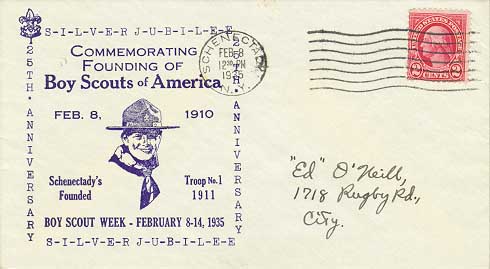 S-I-L-V-E-R-J-U-B-I-L-E-E
25TH-ANNIVERSARY
COMMEMORATING
FOUNDING OF
BOY SCOUTS OF AMERICA
FEB. 8, 1910
Schenectady's Troop No. 1
Founded 1911
BOY SCOUT WEEK - FEBRUARY 8-14, 1935
S-I-L-V-E-R-J-U-B-I-L-E-E
25TH ANNIVERSARY
SCHENECTADY
FEB 8
12 30 PM
1935
N.Y.
UNITED STATES POSTAGE
2 CENTS 2
"Ed" O'Neill,
1718 Rugby Rd.,
City.